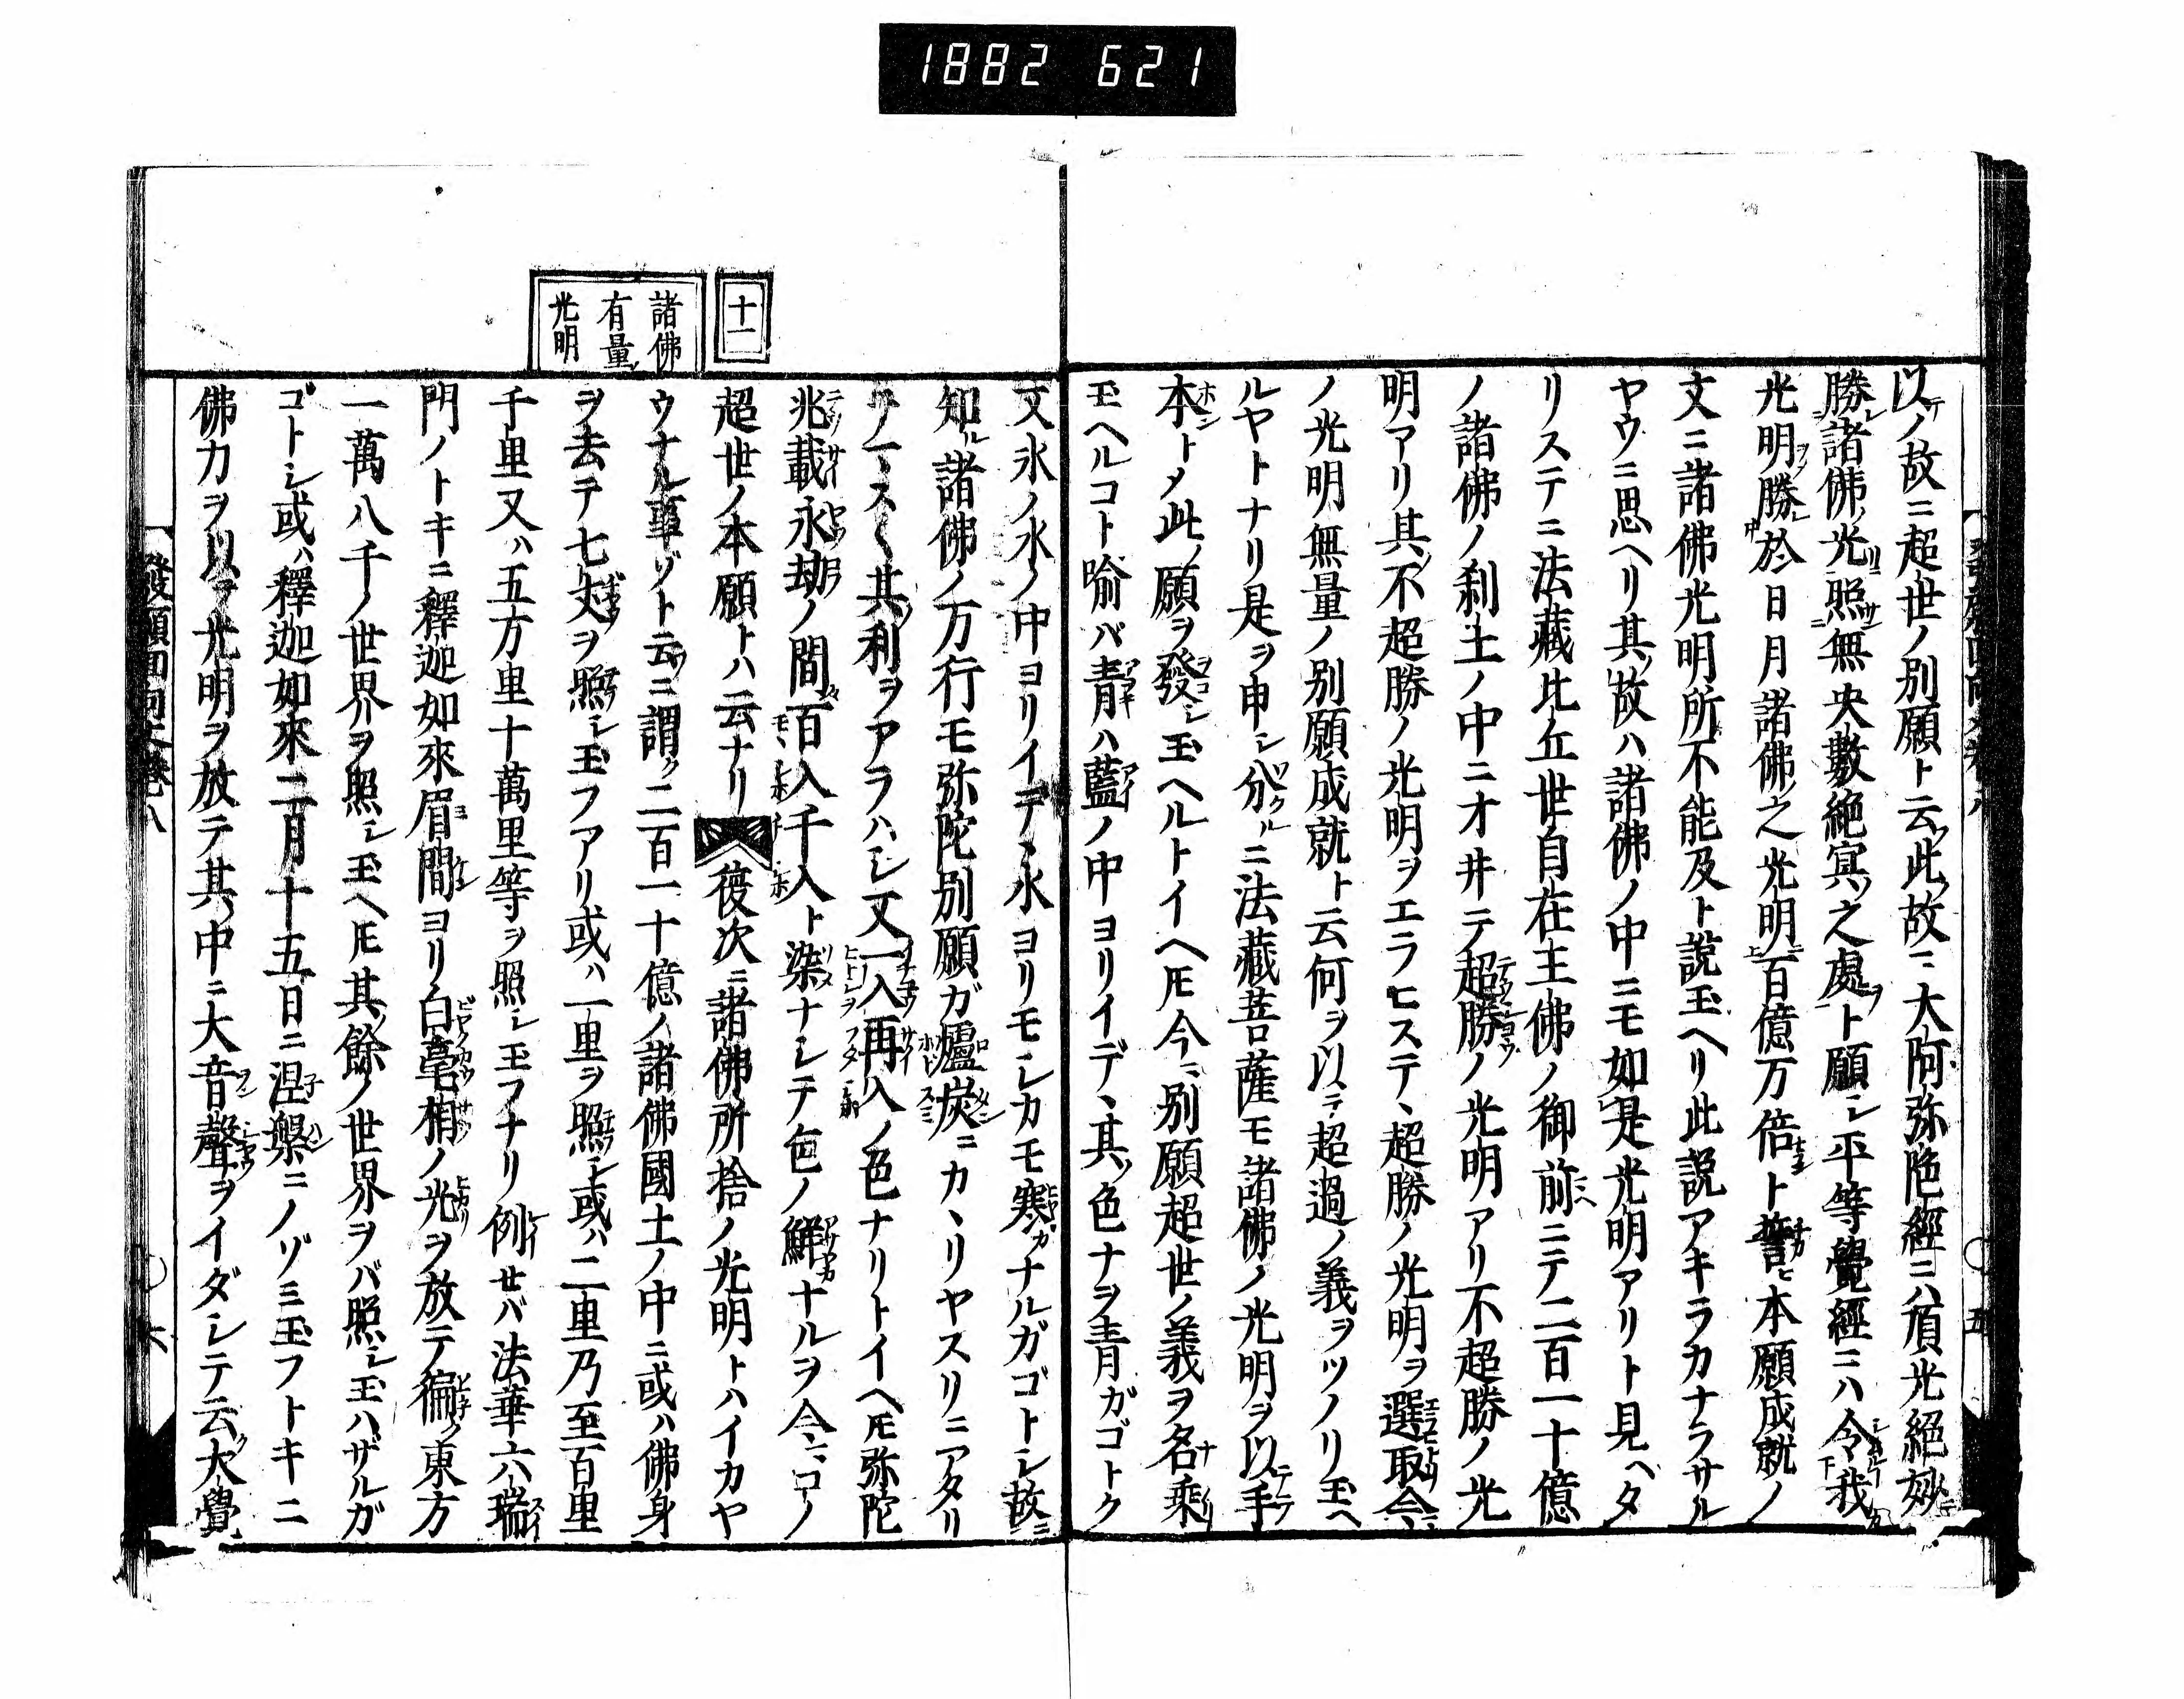 1882 621
以ノ故ニ超世ノ別願ト云此故ニ大阿弥陀經ニハ頂光絕妙
勝諸佛光照無央數絕冥之處ト願シ平等覺經ニハ令我
光明勝於日月諸佛之光明百億万倍ト誓ヒ本願成就ノ
文ニ諸佛光明所不能及ト說玉ヘリ此說アキラカナラサル
ヤウニ思ヘリ其故ハ諸佛ノ中ニモ如是光明アリト見ヘタ
リステニ法藏比丘世自在王佛ノ御前ニテ二百一十億
ノ諸佛ノ刹土ノ中ニオ井テ超勝ノ光明アリ不超勝ノ光
明アリ其不超勝ノ光明ヲエラヒステ、超勝ノ光明ヲ選取今
ノ光明無量ノ別願成就ト云何ヲ以テ超過ノ義ヲツノリ玉ヘ
ルヤトナリ是ヲ申シ分ルニ法藏菩薩モ諸佛ノ光明ヲ以手
本トメ此願ヲ發シ玉ヘルトイヘ𪜈今ニ別願超世ノ義ヲ名乘
玉ヘルコト喻バ青ハ藍ノ中ヨリイデ、其色ナヲ青ガゴトク
十一
諸佛
有量
光明
又氷ノ水ノ中ヨリイデ、水ヨリモシカモ寒ナルガゴトシ故ニ
知ル諸佛ノ万行モ弥陀別願ガ爐炭ニカ、リヤスリニアタリ
其利ヲアラハシ又一入再入ノ色ナリトイヘ𪜈弥陀
兆載永劫ノ間百入千入ト染ナシテ色ノ鮮ナルヲ今ニコノ
超世ノ本願トハ云ナリ 後次ニ諸佛所捨ノ光明トハイカヤ
ウナル事ゾト云ニ謂ク二百一十億ノ諸佛國土ノ中ニ或ハ佛身
ヲ去テ七丈ヲ照シ玉フアリ或ハ一里ヲ照シ或ハ二里乃至百里
千里又ハ五方里十萬里等ヲ照シ玉フナリ例セバ法華六瑞
門ノトキニ釋迦如來眉間ヨリ白毫相ノ光ヲ放テ徧ク東方
一萬八千ノ世界ヲ照シ玉ヘ𪜈其餘ノ世界ヲバ照シ玉ハザルガ
ゴトシ或ハ釋迦如來二月十五日ニ涅槃ニノゾミ玉フトキニ
佛力ヲ以テ光明ヲ放テ其中ニ大音聲ヲイダシテ云ク大覺
發願回向文卷八
六